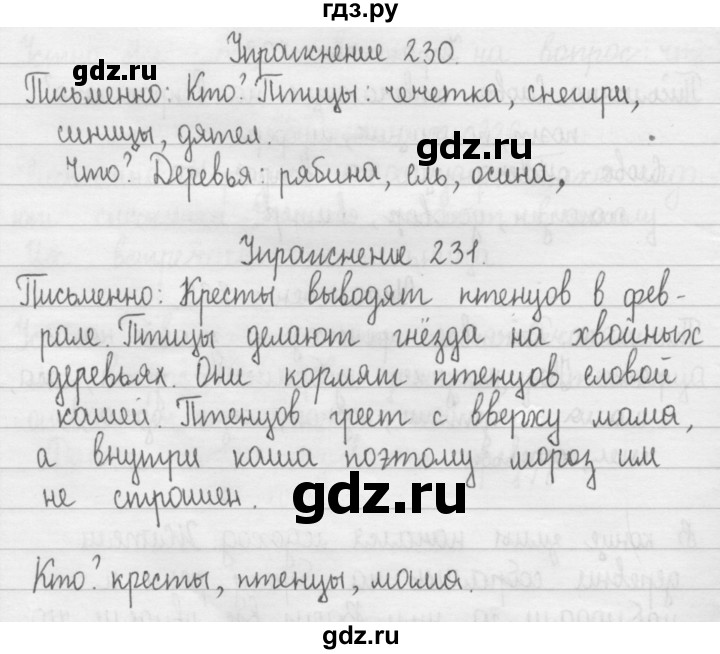 гдз.ру
Упражнение 230.
gdz.ru
Письменно: Кто? Птицы: чечетка, снегири,
синицы, дятел.
gdz.ru
Что? Деревья: рябина, ель, осина,
Упражнение 231.
gdz.ru
Письменно: Кресты выводят птенцов в фев-
рале. Птицы делают гнёзда на хвойных
деревьях. Они кормят птенцов еловой
кашей. Птенцов греет с вверху мама,
gdz.ru
а внутри каша поэтому мороз им
не страшен.
gdz.ru
Кто? кресты, птенцы, мама.
gdz.ru